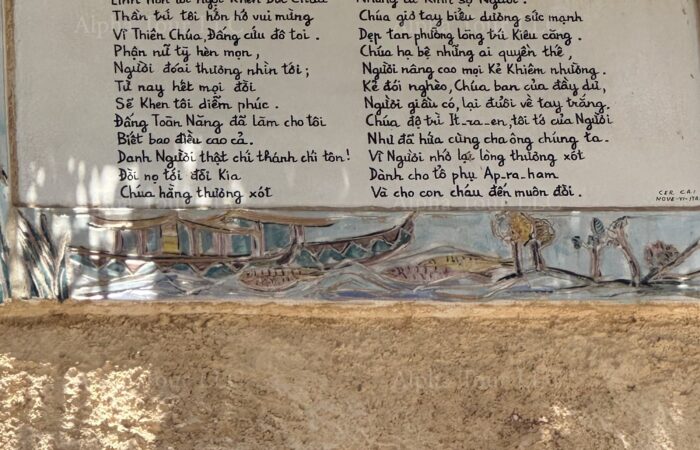 Linh hồn tôi ngợi Khen Đức Chúa
Thần trí tôi hớn hở vui mừng
Vì Thiên Chúa, Đấng cứu độ tôi.
Phận nữ tỳ hèn mọn,
Người đoái thương nhìn tới;
Từ nay hết mọi đời
Sẽ Khen tôi diễm phúc.
Đấng Toàn Năng đã làm cho tôi
Biết bao điều cao cả.
Danh Người thật chí thánh chí tôn!
Đời nọ tới đời Kia
Chúa hằng thương xót
Những ai Kính sợ Người.
Chúa giơ tay biểu dương sức mạnh
Dẹp tan phường lòng trí Kiêu căng.
Chúa hạ bệ những ai quyền thế,
Người nâng cao mọi Kẻ Khiêm nhường.
Kẻ đói nghèo, Chúa ban của đầy dư,
Người giầu có, lại đuổi về tay trắng.
Chúa độ trì It_ra_en, tôi tớ của Người
Như đã hứa cùng cha ông chúng ta.
Vì Người nhớ lại lòng thương xót
Dành cho tổ phụ Ap_ra_ham
Và cho con cháu đến muôn đời.
CER. CAI